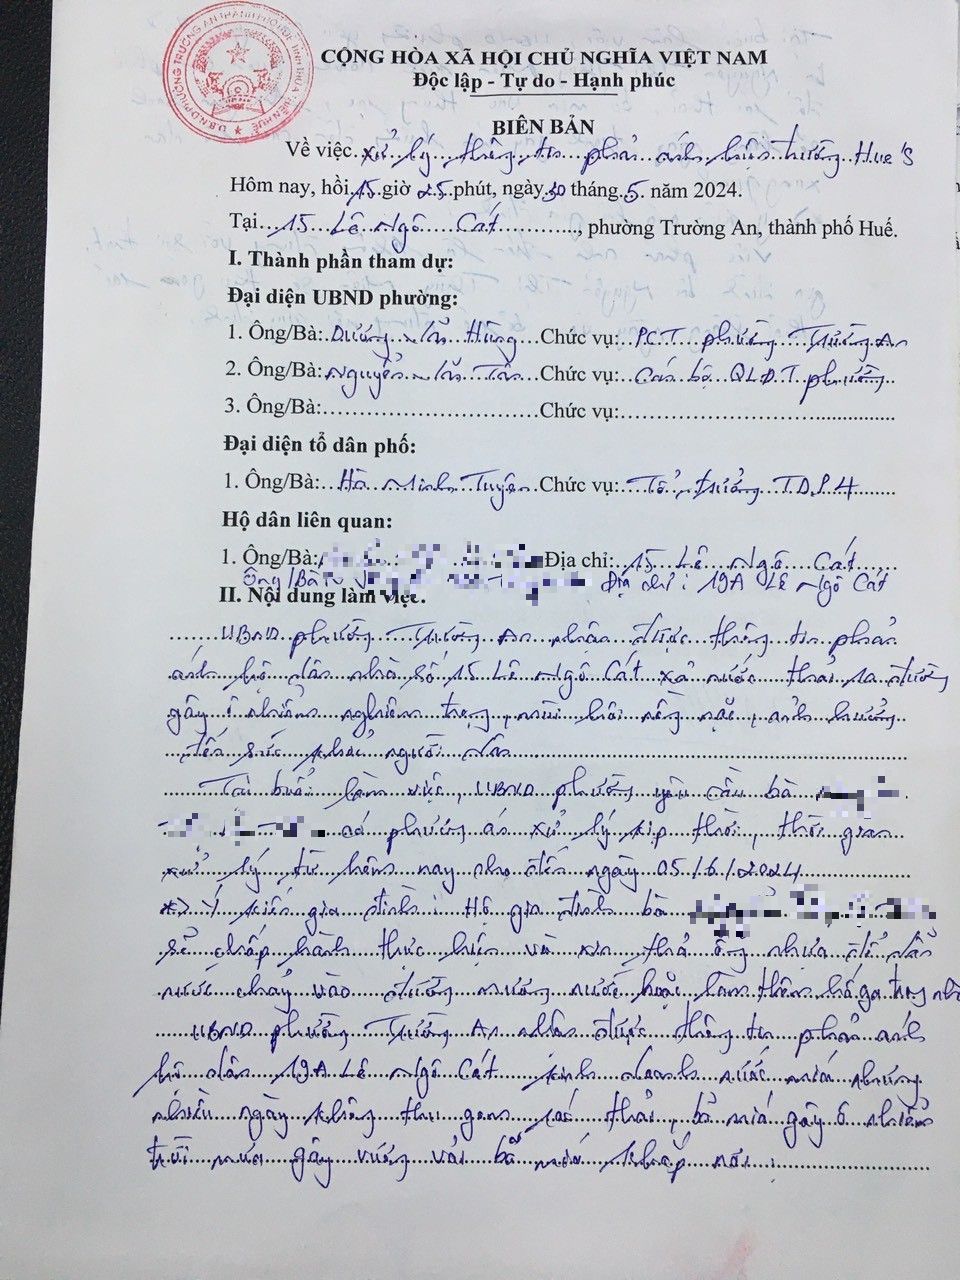 U.B.N.D PHƯỜNG TRƯỜNG AN THÀNH PHỐ HUẾ TỈNH THỪA THIÊN HUẾ
CỘNG HÒA XÃ HỘI CHỦ NGHĨA VIỆT NAM
Độc lập - Tự do - Hạnh phúc
BIÊN BẢN
Về việc xử lý thông tin phản ánh hiện trường Hue'S
Hôm nay, hồi 15 giờ 25 phút, ngày 30 tháng 5 năm 2024.
Tại 15 Lê Ngô Cát, phường Trường An, thành phố Huế.
I. Thành phần tham dự:
Đại diện UBND phường:
1. Ông/Bà: Dương Văn Hùng Chức vụ: PCT phường Trường An
2. Ông/Bà: Nguyễn Văn Tân Chức vụ: Cán bộ QLĐT phường
3. Ông/Bà: Chức vụ:
Đại diện tổ dân phố:
1. Ông/Bà: Hà Minh Tuyên Chức vụ: Tổ trưởng TDP 4
Hộ dân liên quan:
1. Ông/Bà: Địa chỉ: 15 Lê Ngô Cát
Ông/Bà Địa chỉ: 19A Lê Ngô Cát
II. Nội dung làm việc:
UBND phường Trường An nhận được thông tin phản
ánh hộ dân nhà số 15 Lê Ngô Cát xả nước thải ra đường
gây ô nhiễm nghiêm trọng, mùi hôi nồng nặc, ảnh hưởng
đến sức khoẻ người dân
Tại buổi làm việc, UBND phường yêu cầu bà
có phương án xử lý kịp thời, thời gian
xử lý từ hôm nay cho đến ngày 05/6/2024
*) Ý kiến gia đình: Hộ gia đình bà
sẽ chấp hành thực hiện và xin thả ống nhựa để dẫn
nước chảy vào đường mương nước hoặc làm thêm hố ga trong nhà
UBND phường Trường An nhận được thông tin phản ánh
hộ dân 19A Lê Ngô Cát kinh doanh nước mía nhưng
nhiều ngày không thu gom rác thải, bã mía gây ô nhiễm
trời mưa gây vương vãi bã mía khắp nơi.